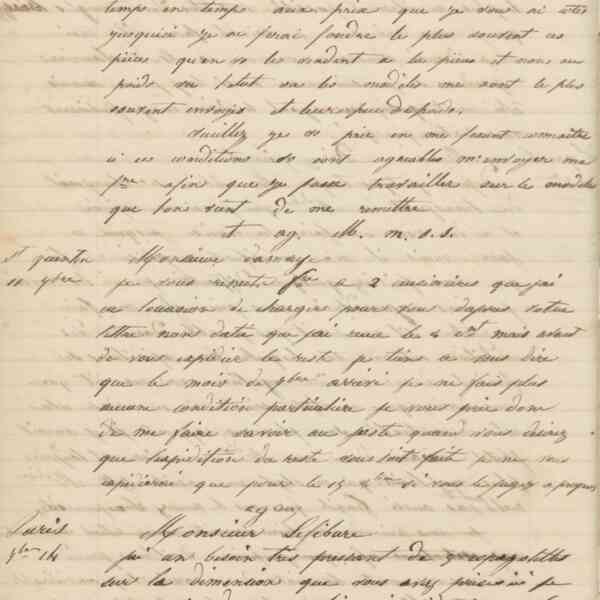 temps en temps aux prix que je vous ai cités
jusqu'ici je ferai fondre le plus souvent ces
pièces qu'en vendant a la pièce et non au
poids les modèles me sont le plus
souvent envoyés et leur
Veuillez je vs prie en me faisant connaitre
si ces conditions vs sont agréables m'envoyer ma
fre afin que je fasse travailler sur le modèle
que vient de me remettre
et ag. M. m. s. s.
St quentin Monsieur Damay
11 9bre je vous remets fre a 2 que j'ai
eu l'occasion de charger pour vous dapres votre
lettre sans date que j'ai recue le 4 cnt mais avant
de vous expédier le reste je tiens a vous dire
que le mois de 9bre arrivé je ne fais plus
aucune condition particulière je vous prie donc
de me faire savoir au juste quand vous désirez
que l'expédition du reste vous soit faite je ne vous
expédierai que pour le 15 si vous le jugez a propos
agreez
Paris Monsieur Lefebure
9bre 14 j'ai un besoin très pressant de 3 espagolettes
sur la dimension que vous avez je